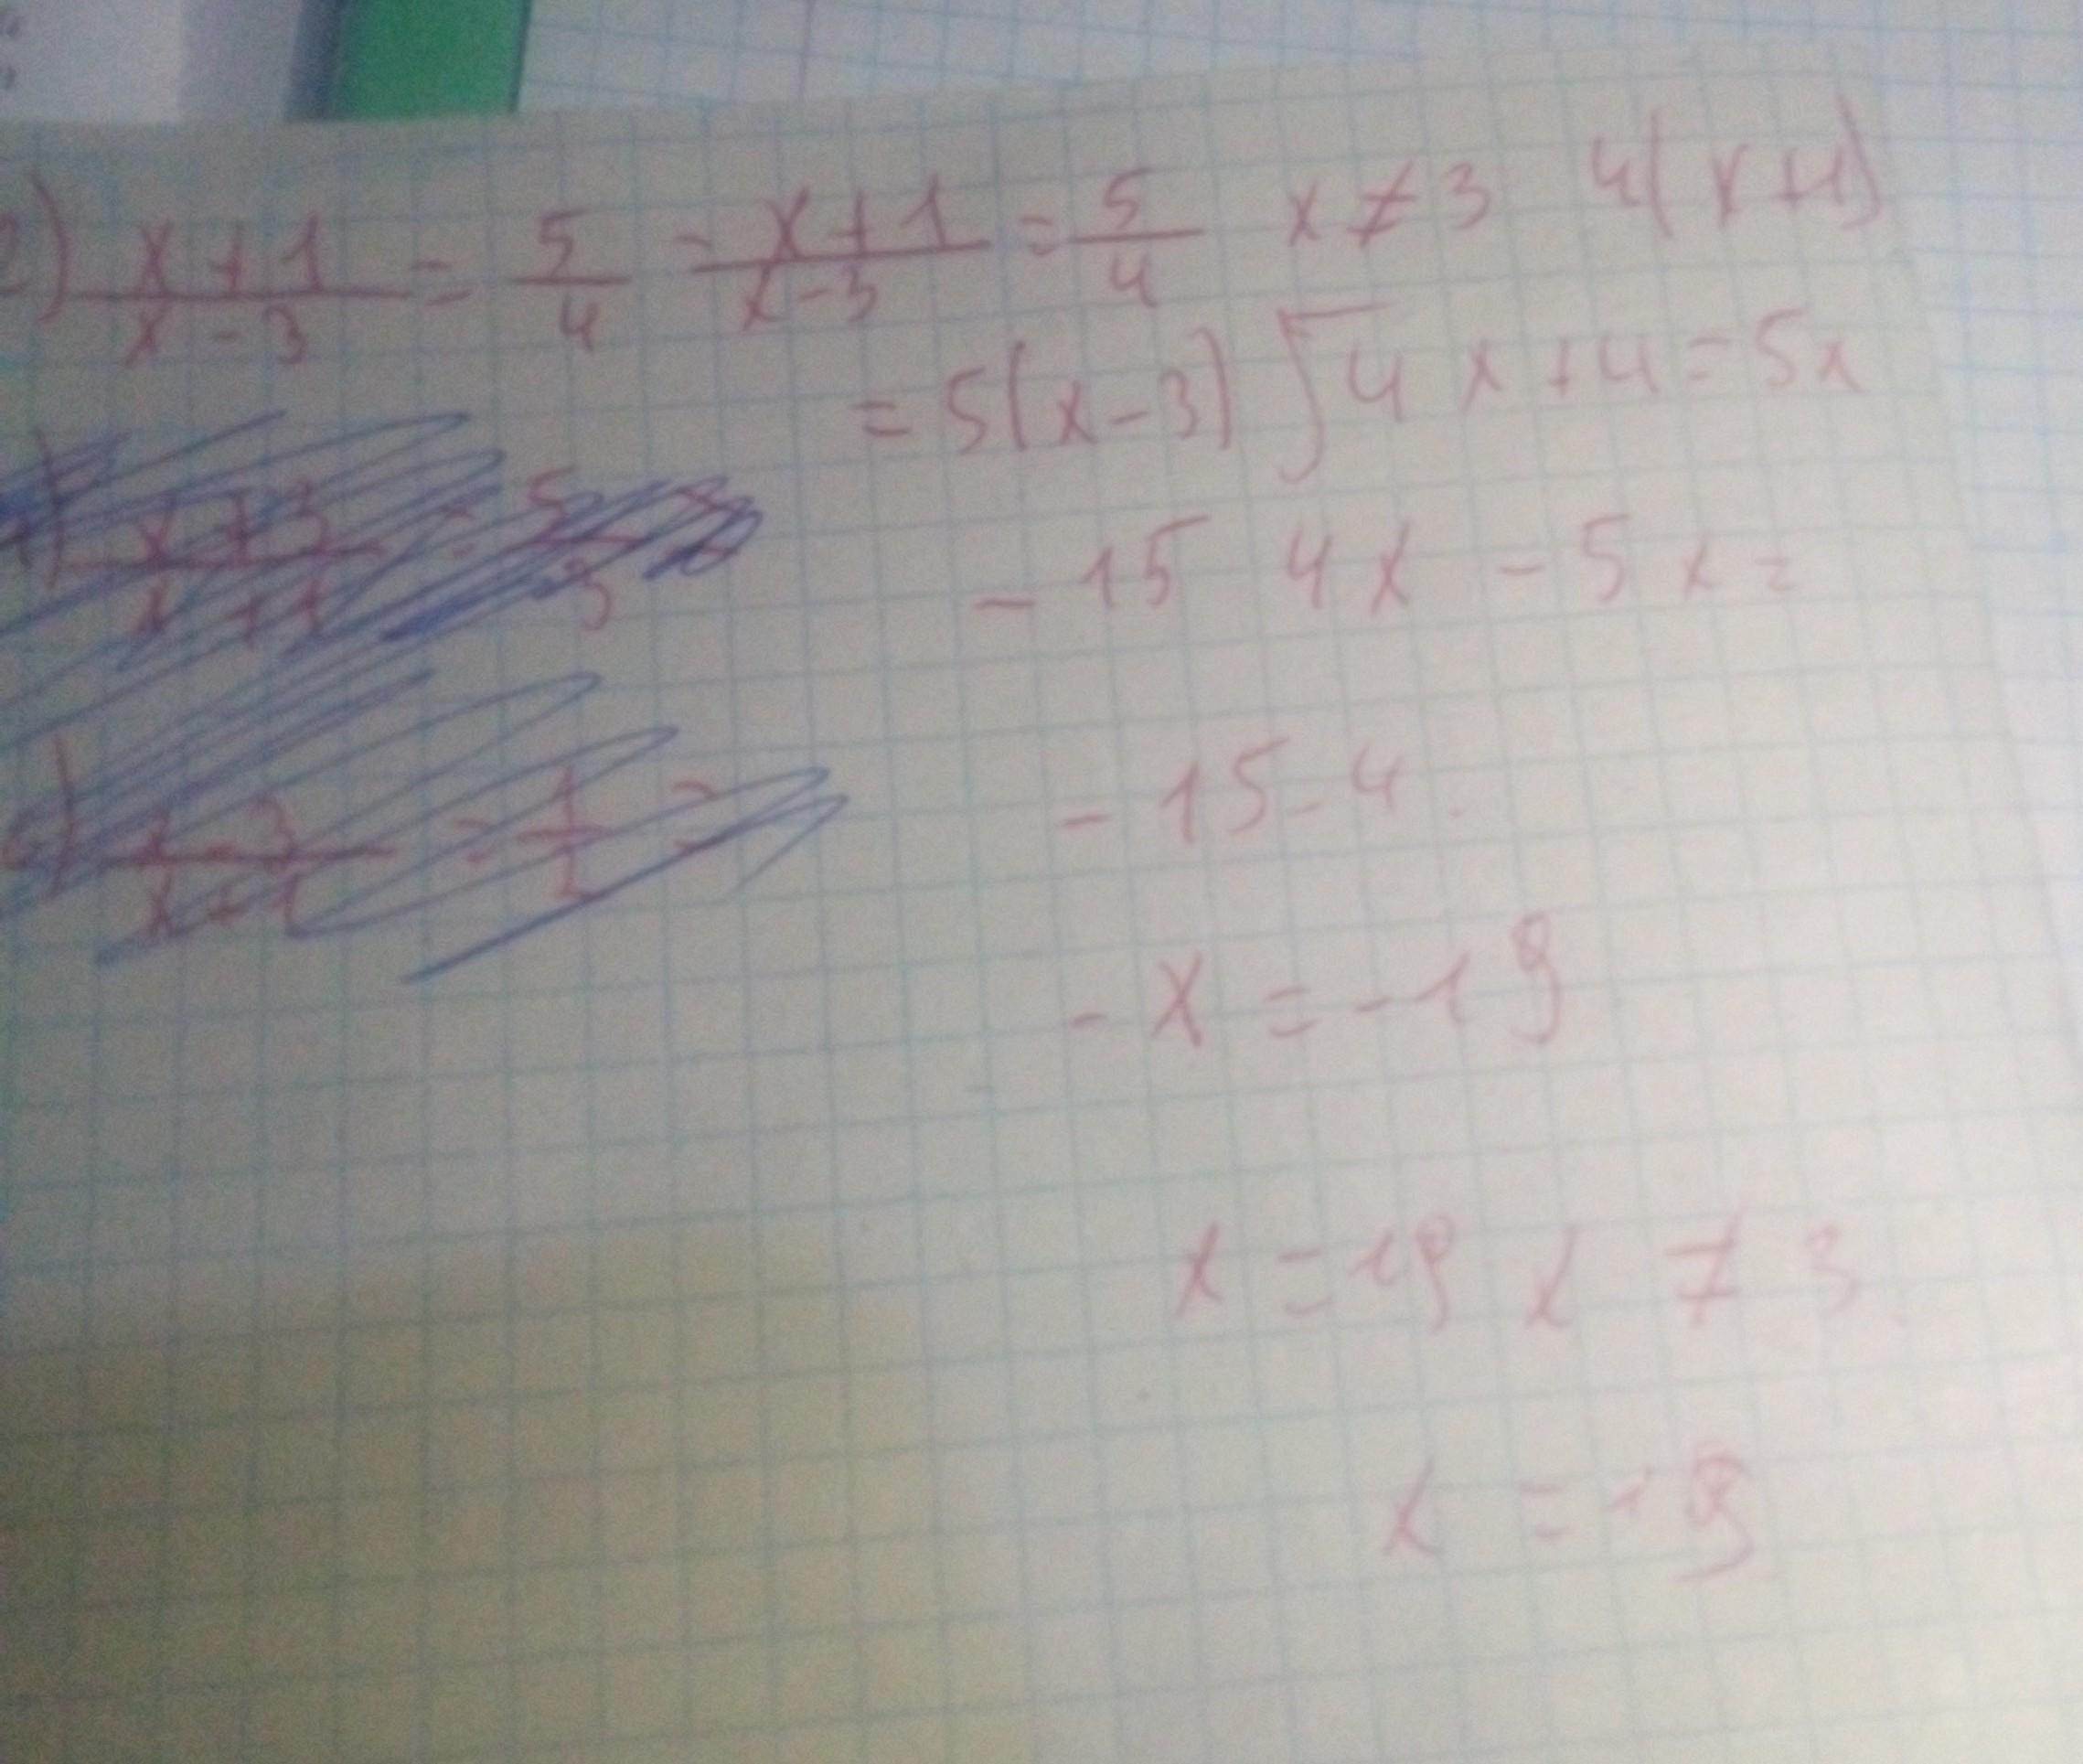 2) x+1/x-3 = 5/4 = x+1/x-3 = 5/4 x≠3 4(x+1)
= 5(x-3) 4x+4=5x
-15 4x -5x=
-15-4
-x = -19
x = 19 x ≠ 3
x = 19